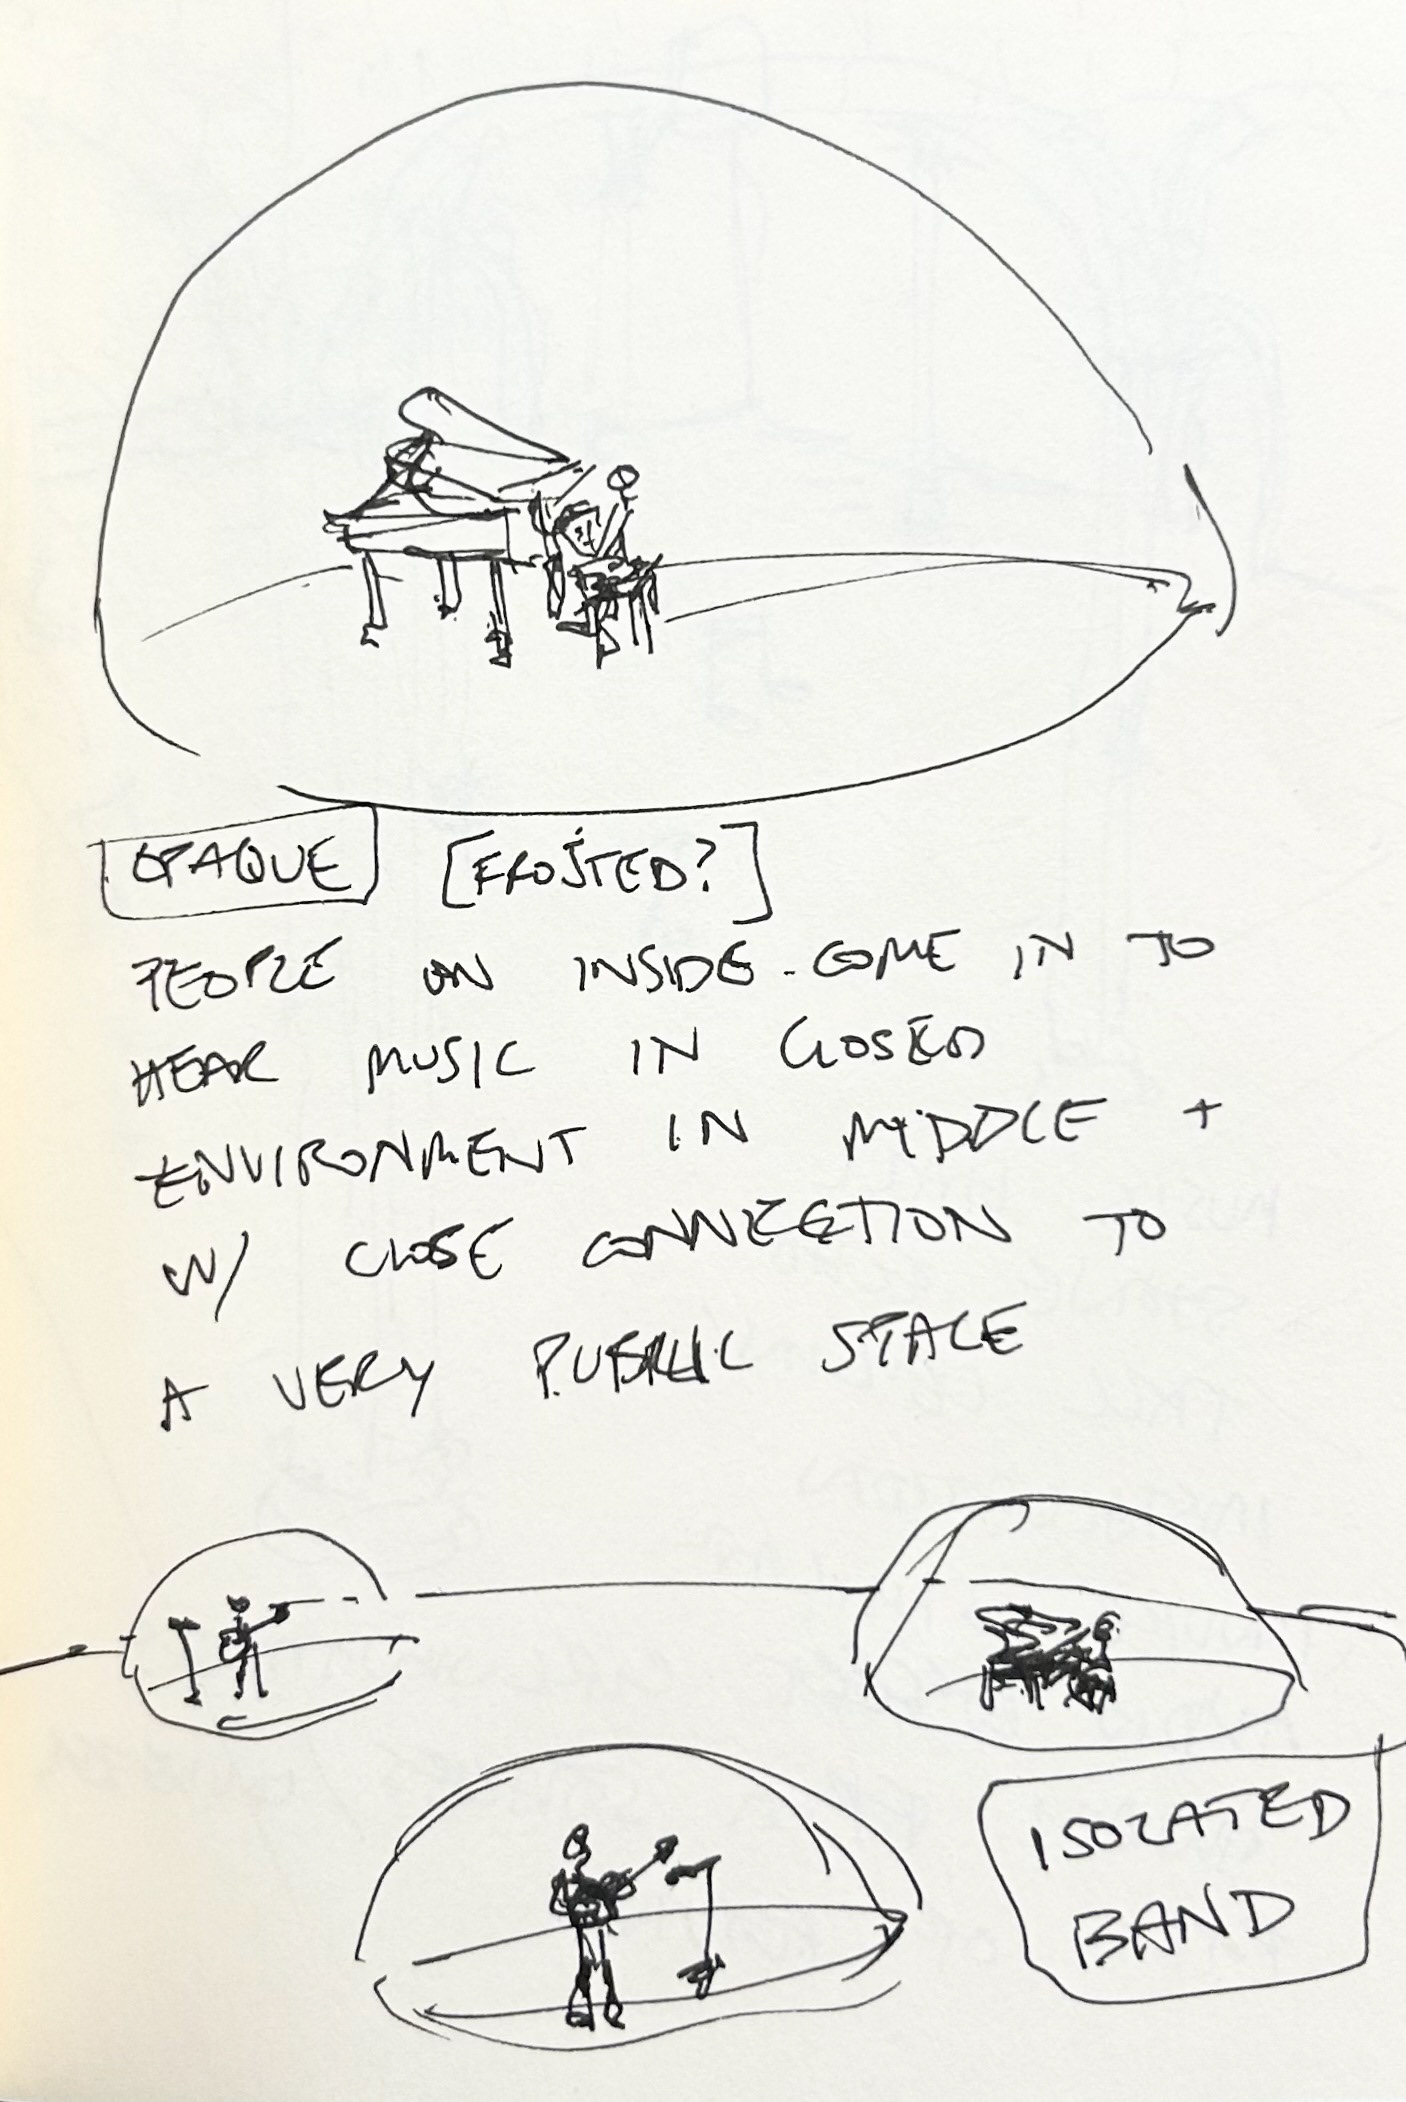 OPAQUE [FROSTED?]
PEOPLE ON INSIDE - COME IN TO
HEAR MUSIC IN CLOSED
ENVIRONMENT IN MIDDLE +
W/ CLOSE CONNECTION TO
A VERY PUBLIC SPACE
ISOLATED
BAND